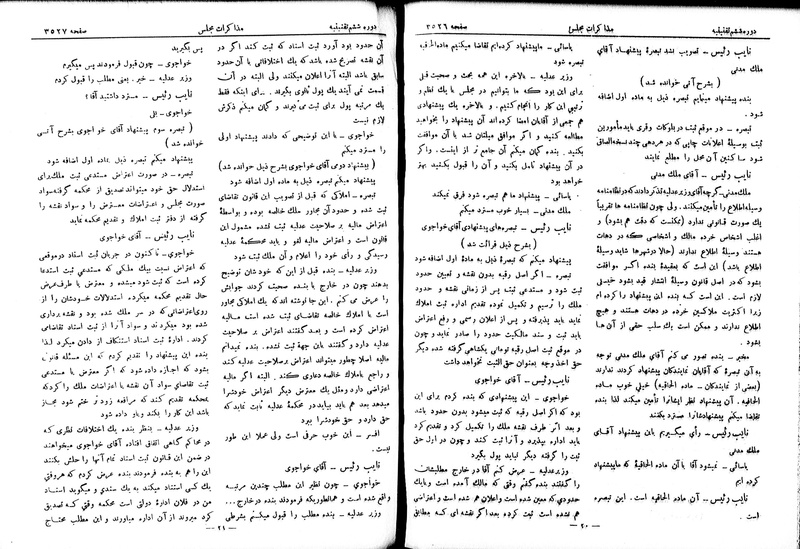 دوره ششم تقنینیه مذاکرات مجلس صفحه ۳۵۲۶
نایب رئیس ـ تصویب نشد تبصرهٔ پیشنهاد آقای
ملک مدنی
(بشرح آتی خوانده شد)
بنده پیشنهاد مینمایم تبصره ذیل به ماده اول اضافه
شود.
تبصره ـ در موقع ثبت در بلوکات و قری باید مأمورین
ثبت بوسیلهٔ اعلانات چاپی که در هر دهی چند نسخه الصاق
شود ساکنین آن محل را مطلع نمایند
نایب رئیس ـ آقای ملک مدنی
ملک مدنی ـ گرچه آقای وزیر عدلیه تذکر دادند که در نظامنامه
وسیله اطلاع را تأمین میکنند. ولی چون نظامنامه ها تقریباً
یک صورت قانونی ندارد (تمکنست که دقت هم بشود) و
اغلب اشخاص خرده مالک و اشخاصی که در دهات
هستند وسیلهٔ اطلاع ندارند (حالا در شهرها شاید وسیلهٔ
اطلاع باشد) این است که بعقیدهٔ بنده اگر موافقت
بشود که در اصل قانون وسیلهٔ انتشار قید بشود خیلی
لازم است. این است که بنده این پیشنهاد را کرده ام
زیرا اکثریت ملاکین خرده در دهات هستند و هیچ
اطلاع ندارند و ممکن است یک سلب حقی از آن ها
بشود
مخبر ـ بنده تصور می کنم آقای ملک مدنی توجه
به آن تبصرهٔ که آقایان نمایندگان پیشنهاد کردند ندارند
(بعضی از نمایندگان ـ ماده الحاقیه) خیلی خوب ماده
الحاقیه. آن پیشنهاد نظر ایشان را تأمین میکند لذا بنده
تقاضا میکنم پیشنهادشانرا مسترد بکنند
نایب رئیس ـ رأی میگیریم باین پیشنهاد آقای
ملک مدنی
یاسائی ـ نمیشود آقا با آن ماده الحاقیهٔ که ما پیشنهاد
کرده ایم
نایب رئیس ـ آن ماده الحاقیه است. این تبصره
است
یاسائی ـ ما پیشنهاد کرده ایم تقاضا میکنیم ماده الحاقیه
تبصره شود
وزیر عدلیه ـ بالاخره این همه بحث و صحبت قبل
برای این بود که ما بتوانیم در مجلس با یک نظم و
ترتیبی این کار را انجام کنیم. و بالاخره یک پیشنهادی
هم جمعی از آقایان امضا کرده اند آن پیشنهاد را بخواهید
مطالعه کنید و اگر موافق میلتان شد با آن موافقت
بکنید. بنده گمان میکنم آن جامع تر از اینست. و اگر
در آن پیشنهاد تامل بکنید و آن را قبول بکنید بهتر
خواهد بود
یاسائی ـ پیشنهاد ما هم تبصره شود فرق نمیکند
ملک مدنی ـ بسیار خوب مسترد میکنم
نایب رئیس ـ تبصره های پیشنهادی آقای خواجوی
(بشرح ذیل قرائت شد)
پیشنهاد میکنم که تبصرهٔ ذیل به مادهٔ اول اضافه شود
تبصره ـ اگر اصل رقبه بدون نقشه و تعیین حدود
ثبت شود و مستدعی ثبت پس از زمانی نقشه و حدود
ملک را ترسیم و تکمیل نموده تقدیم اداره ثبت املاک
نماید باید پذیرفته و پس از اعلان رسمی و رفع اعتراض
باید ثبت و سند مالکیت حدود را صادر نماید و چون
در موقع ثبت اصل رقبه تومانی یکشاهی گرفته شده دیگر
حق اخذ وجه بعنوان حق الثبت نخواهد داشت
نایب رئیس ـ آقای خواجوی
خواجوی ـ این پیشنهادی که بنده کردم برای این
بود که اگر اصل رقبه که ثبت میشود بدون حدود باشد
و بعد اگر طرف نقشه ملک را تکمیل کرد و تقدیم کرد
باید اداره بپذیرد و آنرا ثبت کند و چون در اول حق
ثبت را گرفته دیگر نباید پول بگیرد
وزیر عدلیه ـ عرض کنم آقا در خارج مطلبشان
را گفتند بنده گفتم وقتی که مالک آمده است و باینک
حدودی که معین شده است و اعلان هم شده است و اعتراضی
هم نشده است ثبت کرده بعد اگر نقشه ای که بمطابق
ـ ۲۰ ـ
دوره ششم تقنینیه مذاکرات مجلس صفحه ۳۵۲۷
آن حدود بود آورد ثبت اسناد که ثبت کند اگر در
آن نقشه تصریح شده باشد که یک اختلافاتی با آن حدود
سابق باشد البته آنرا اعلان میکنند ولی البته در آن
قسمت نمی آیند یک پول ثانوی بگیرند. ـ برای اینکه فقط
یک مرتبه پول برای ثبت می گیرند و گمان میکنم ذکرش
لازم نیست
خواجوی ـ با این توضیحی که دادند پیشنهاد اولی
را مسترد میکنم
(پیشنهاد دومی آقای خواجوی بشرح ذیل خوانده شد)
پیشنهاد میکنم تبصره ذیل به ماده اول اضافه شود
تبصره ـ املاکی که قبل از تصویب این قانون تقاضای
ثبت شده و حدود آن مجاور ملک خالصه بوده و بواسطهٔ
اعتراض مالیه بر صلاحیت عدلیه ثبت نشده مشمول این
قانون است و اعتراض مالیه لغو و باید محکمهٔ عدلیه
رسیدگی و رأی خود را اعلام و آن ملک ثبت شود
وزیر عدلیه ـ بنده قبل از این که خود شان توضیح
بدهند چون در خارج با بنده صحبت کردند جوابش
را عرض می کنم. این جا نوشته اند که یک املاکی مجاور
است با املاک خالصه تقاضای ثبت شده است مالیه
اعتراض کرده است و بعد گفتند اعتراض بر صلاحیت
عدلیه دارد و گفتند باین جهة ثبت نشده. بنده نمیدانم
مالیه اصلا چطور میتواند اعتراض بر صلاحیت عدلیه بکند
و راجع باملاک خالصه دعاوی کند. البته اگر مالیه
اعتراض دارد مثل یک معترض دیگر اعتراض خودش را
میدهد بعد هم باید بیاید در محکمهٔ عدلیه ثابت نماید که
حق دارد و حق خودش را ببرد
افسر ـ این خوب حرفی است ولی عملا این طور
نیست.
نایب رئیس ـ آقای خواجوی
خواجوی ـ چون نظیر این مطلب چندین مرتبه
واقع شده است و همانطوریکه فرمودند بنده در خارج...
وزیر عدلیه ـ بنده مطلب را قبول میکنم بشرطی
پس بگیرید
خواجوی ـ چون قبول فرمودند پس میگیرم
وزیر عدلیه ـ خیر. یعنی مطلب را قبول کردم
نایب رئیس ـ مسترد داشتید آقا؟
خواجوی ـ بلی
(تبصره سوم پیشنهاد آقای خواجوی بشرح آتی
خوانده شد)
پیشنهاد میکنم تبصره ذیل ماده اول اضافه شود
تبصره ـ در صورت اعتراض مستدعی ثبت ملک برای
استدلال حق خود میتواند تصدیق از محکمه گرفته سواد
صورت مجلس و اعتراضات معترض را و سواد نقشه را
گرفته از دفتر ثبت املاک و تقدیم محکمه نماید
نایب رئیس ـ آقای خواجوی
خواجوی ـ تا کنون در جریان ثبت اسناد در موقعی
که اعتراض نسبت بیک ملکی که مستدعی ثبت استدعا
کرده است که ثبت شود میشده و معترض یا طرف عرض
حال تقدیم محکمه میکرده استدلالات خودشان را از
روی اعتراضاتی که در سر ملک شده بود و نقشه برداری
شده بود میکردند و سواد آنرا از ثبت اسناد تقاضائی
کردند. ادارهٔ ثبت اسناد استنکاف از دادن میکرد لذا
بنده این پیشنهاد را تقدیم کردم که این مسئله قانونی
بشود که اجازه داده شود که اگر معترض یا مستدعی
ثبت تقاضای سواد آن نقشه یا اعتراضات ملک را کرد که
بمحکمه تقدیم کند که مرافعه زودتر ختم شود مجاز
باشد این کار را بکند و باو داده شود
وزیر عدلیه ـ بنظر بنده یک اختلافات نظری که
در محاکم گاهی اتفاق افتاده آقای خواجوی میخواهند
در ضمن این قانون ثبت اسناد تمام آنها را حلش بکنند
این را هم به بنده فرمودند بنده عرض کردم که هر وقتی
یک کسی استناد میکند به یک سندی و میگوید اسناد
من در فلان ادارهٔ دولتی است محکمه وقتی که تصدیق
کرد میروند از آن اداره میاورند و این مطلب محتاج
ـ ۲۱ ـ